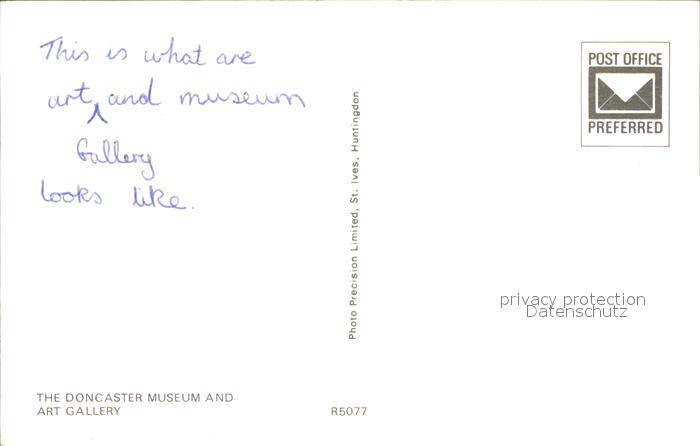 This is what are
art, and museum
Gallery
looks like.
POST OFFICE
PREFERRED
Photo Precision Limited, St. Ives, Huntingdon
privacy protection
Datenschutz
THE DONCASTER MUSEUM AND
ART GALLERY
R5077